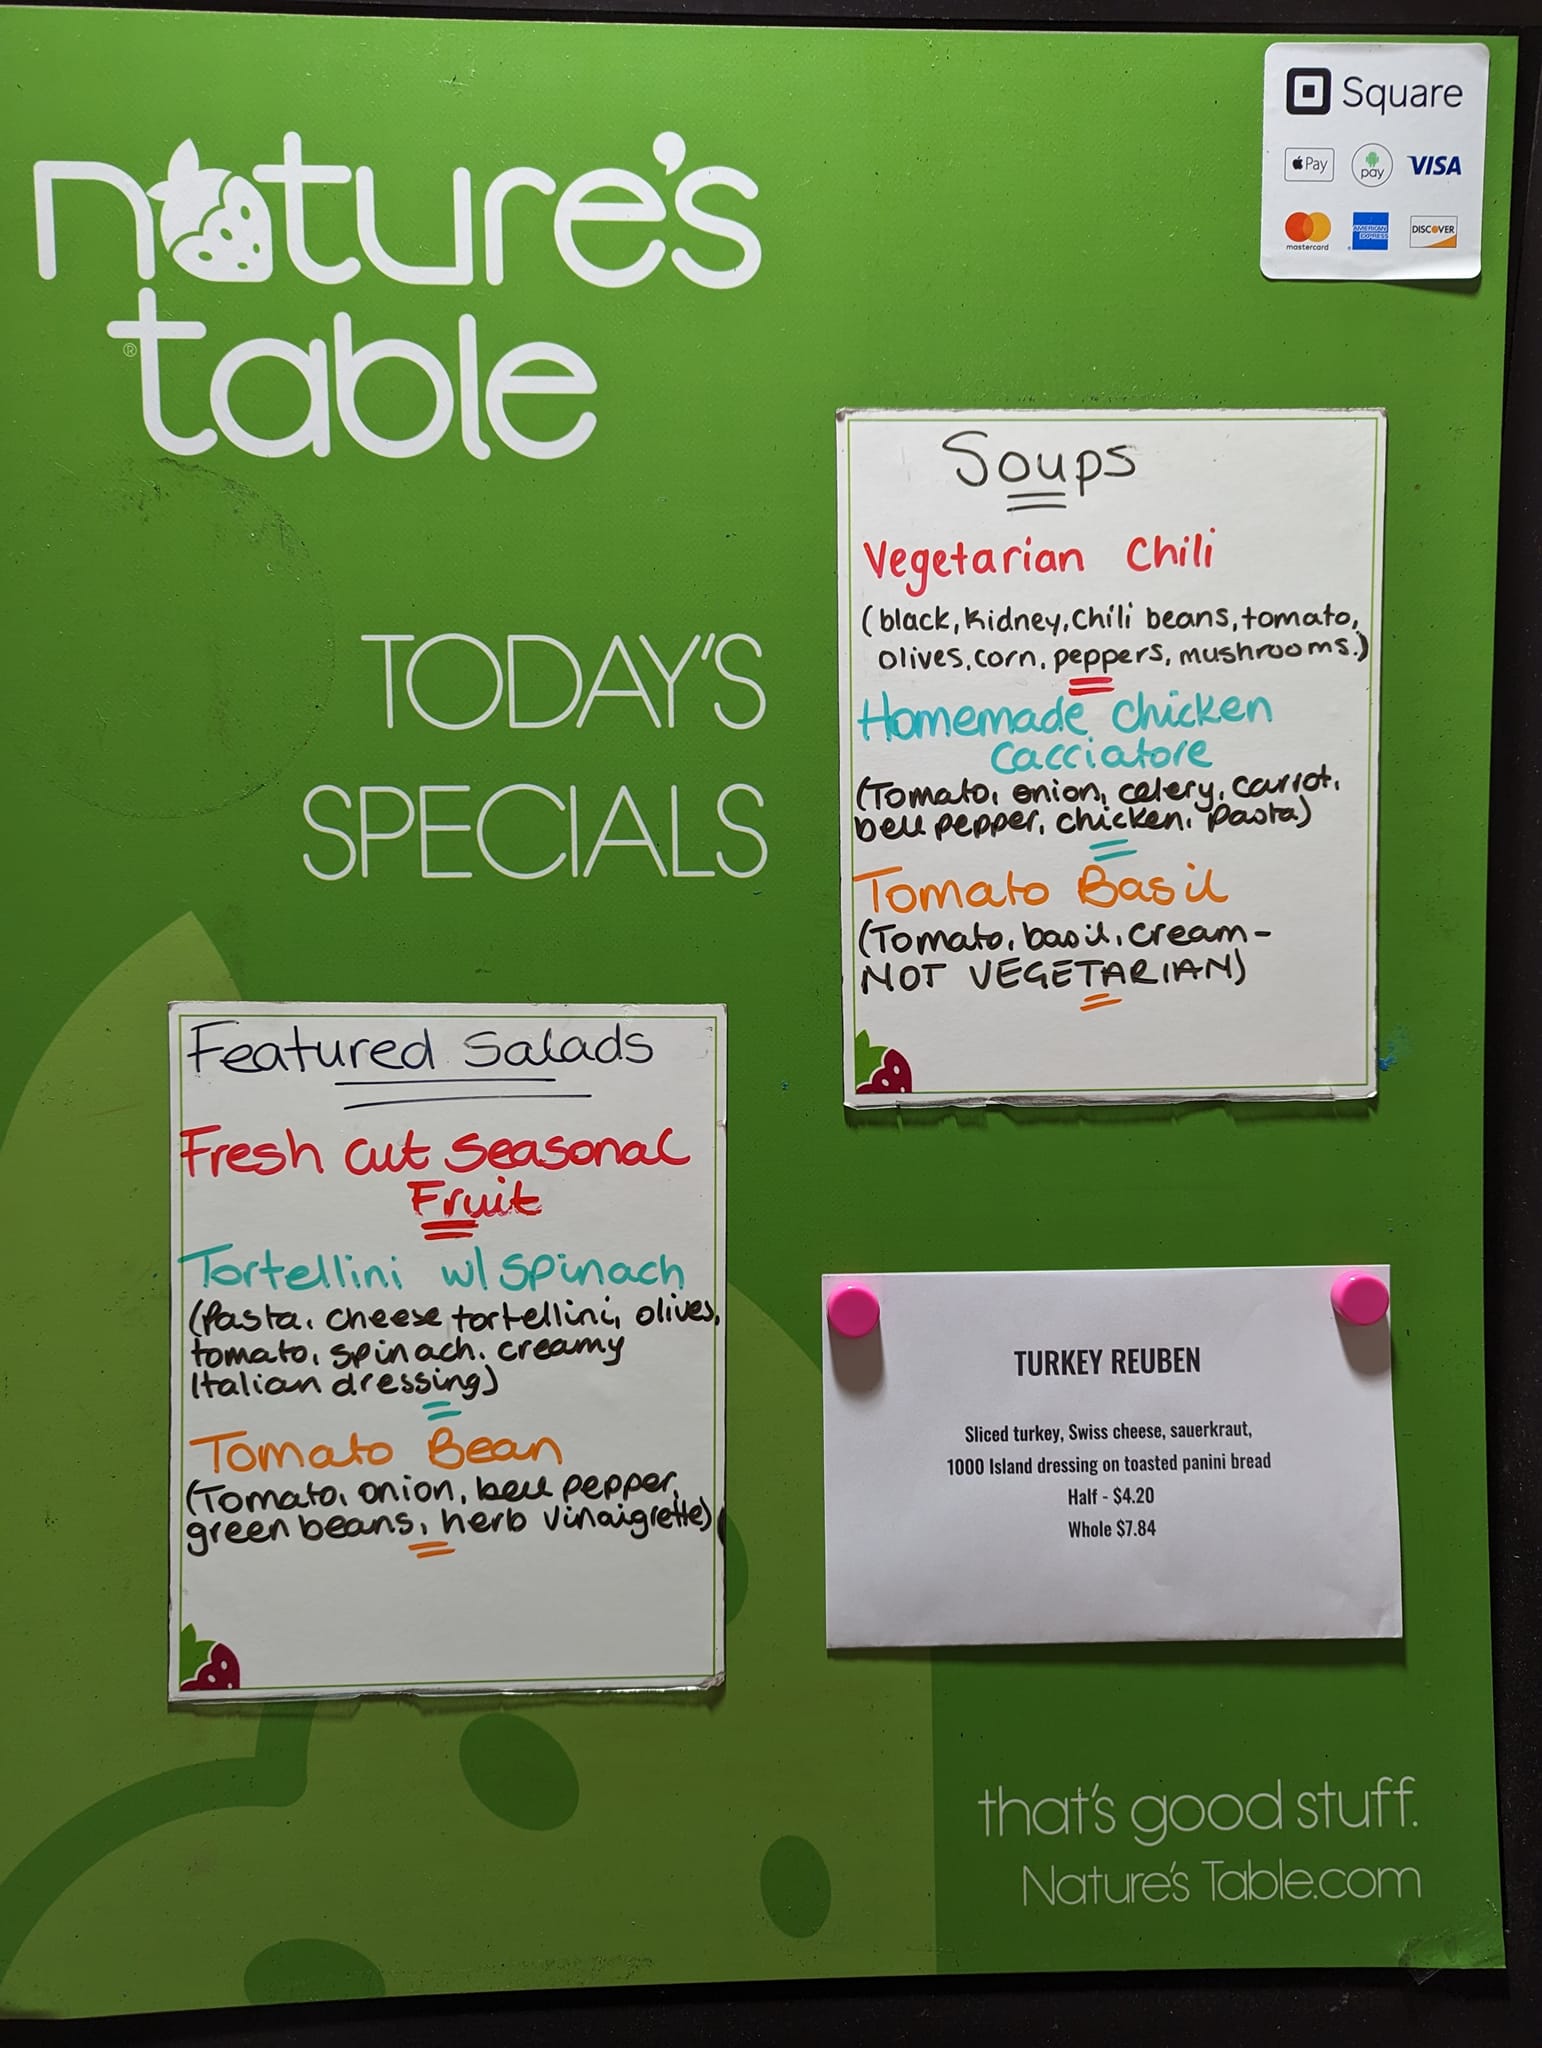 nature's
table
®
Square
Pay
pay
VISA
mastercard
AMERICAN
EXPRESS
DISCOVER
TODAY'S
SPECIALS
Soups
Vegetarian Chili
(black, kidney, chili beans, tomato,
olives, corn, peppers, mushrooms.)
Homemade Chicken
Cacciatore
(Tomato, onion, celery, carrot,
bell pepper, chicken, pasta)
Tomato Basil
(Tomato, basil, cream-
NOT VEGETARIAN)
Featured Salads
Fresh cut seasonal
Fruit
Tortellini w/ Spinach
(Pasta, cheese tortellini, olives,
tomato, spinach, creamy
Italian dressing)
Tomato Bean
(Tomato, onion, bell pepper,
green beans, herb vinaigrette)
TURKEY REUBEN
Sliced turkey, Swiss cheese, sauerkraut,
1000 Island dressing on toasted panini bread
Half - $4.20
Whole $7.84
that's good stuff.
Nature's Table.com